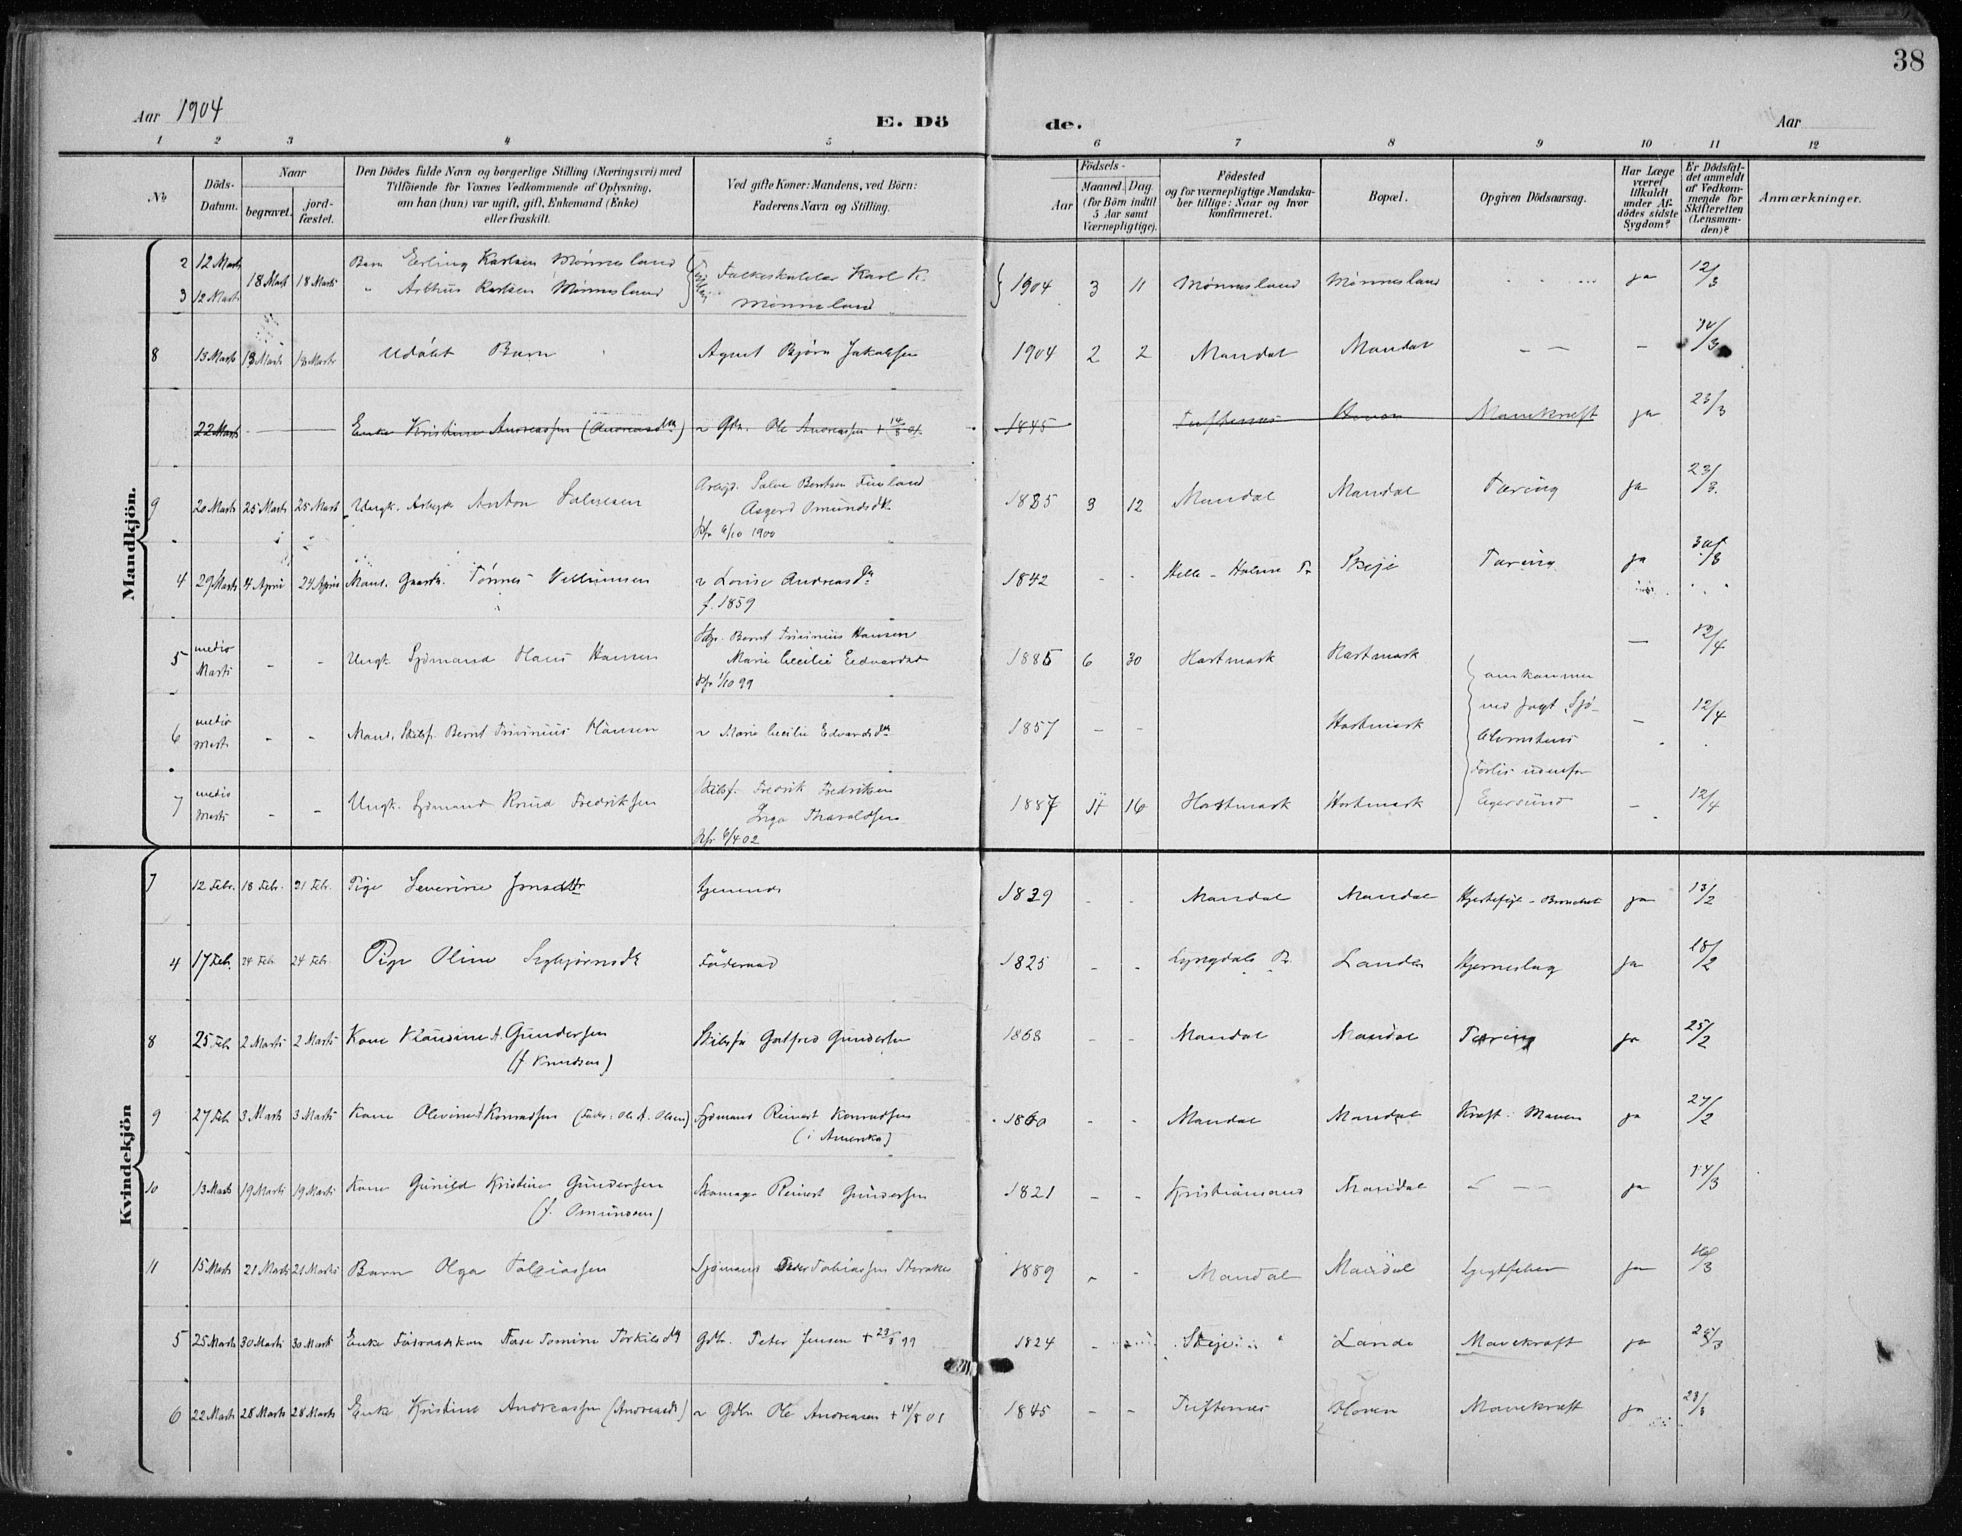 38
Aar 1904
E. Dö
de.
Aar
1 2 3 4 5 6 7 8 9 10 11 12
No.
Döds-Datum.
Naar
begravet.
jordfæstet.
Den Dödes fulde Navn og borgerlige Stilling (Næringsvei) med
Tilföiende for Voxnes Vedkommende af Oplysning,
om han (hun) var ugift, gift, Enkemand (Enke)
eller fraskilt.
Ved gifte Koner: Mandens, ved Börn:
Faderens Navn og Stilling.
Födsels-
Aar
Maaned. Dag.
(for Börn indtil
5 Aar samt
Værnepligtige).
Födested
og for værnepligtige Mandskaber tillige: Naar og hvor
konfirmeret.
Bopæl.
Opgiven Dödsaarsag.
Har Læge
været
tilkaldt
under Afdödes sidste
Sygdom?
Er Dödsfaldet anmeldt
af Vedkommende for
Skifteretten
(Lensmanden)?
Anmærkninger.
Mandkjön.
2 12 Marts 18 Marts 18 Marts Barn Erling Karlsen Mønnesland Karl K. 1904 3 11 Mønnesland Mønnesland ja 12/3
3 12 Marts " Arthur Karlsen Mønnesland Mønnesland
8 13 Marts 18 Marts 18 Marts Udöbt Barn Agent Bjørn Jakobsen 1904 2 2 Mandal Mandal — — — /3
22 Marts — — Enke Kristine Andreassen (Andreasdtr) v Gbr. Ole Andreassen + 14/8 01 1845 Tuftenes Hoven Mavekræft ja 23/3
9 20 Marts 25 Marts 25 Marts Ungk. Arbeider Anton Salvesen Arbeid. Salve Berntsen Finland 1885 3 12 Mandal Mandal Tæring ja 23/3
Asgerd Omundsdtr
1900
4 29 Marts 4 April 24 April Mand. Gaardb. Tönnes Villumsen v Lovise Andreasdtr 1842 - - Helle - Holme Pr Skeje Tæring ja 30/3
f. 1859
5 medio Marts - - Ungk. Sjömand Hans Hansen Bernt Trivinius Hansen 1885 6 30 Hartmark Hartmark — 12/4
Marie Cecilie Edvardsd
omkommen
ved Jagt
6 medio Marts - - Mand, Skibsf. Bernt Trivinius Hansen v Marie Cecilie Edvardsdtr 1857 - - Hartmark — 12/4
Forlis udenfor
Egersund
7 medio Marts - - Ungk. Sjömand Knud Fredriksen Skibsf. Fredrik Fredriksen 1887 16 Hartmark Hartmark — 12/4
Kvindekjön
7 12 Febr. 18 Febr. 21 Febr. Pige Severine Jensdtr 1829 - - Mandal Mandal ja 13/2
4 17 Feb. 24 Febr. 24 Febr. Pige Oline Sigbjørnsdtr Föderaad 1825 - - Lyngdals Pr. Lande Hjerneslag ja 18/2
8 25 Feb 2 Marts 2 Marts Kone Klaudine A. Gundersen Skibsfør Gotfred Gundersen 1868 - - Mandal Mandal Tæring ja 25/2
(f. Knudsen)
9 27 Feb 3 Marts 3 Marts Kone Olevine Konradsen (Fader: Ole A. Olsen) Sjömand Reinert Konradsen 1860 - - Mandal Mandal Kræft. Maven ja 27/2
(i Amerika)
10 13 Marts 19 Marts 19 Marts Kone Gunild Kristine Gundersen Skomager Reinert Gundersen 1821 - - Kristiansand Mandal — — ja 14/3
(f. Omundsen)
11 15 Marts 21 Marts 21 Marts Barn Olga Tobiassen Sjömand Peder Tobiassen 1889 - - Mandal Mandal Gigtfeber ja 16/3
5 25 Marts 30 Marts 30 Marts Enke Föderaadskone Aase Tomine Torkilsdtr Gdb. Peter Jensen + 99 1824 - Skeje Lande Mavekræft ja
6 22 Marts 28 Marts 28 Marts Enke Kristine Andreassen (Andreasdtr) v Gdbr Ole Andreassen + 14/8 01 1845 - - Tuftenes Hoven Mavekræft ja 23/3